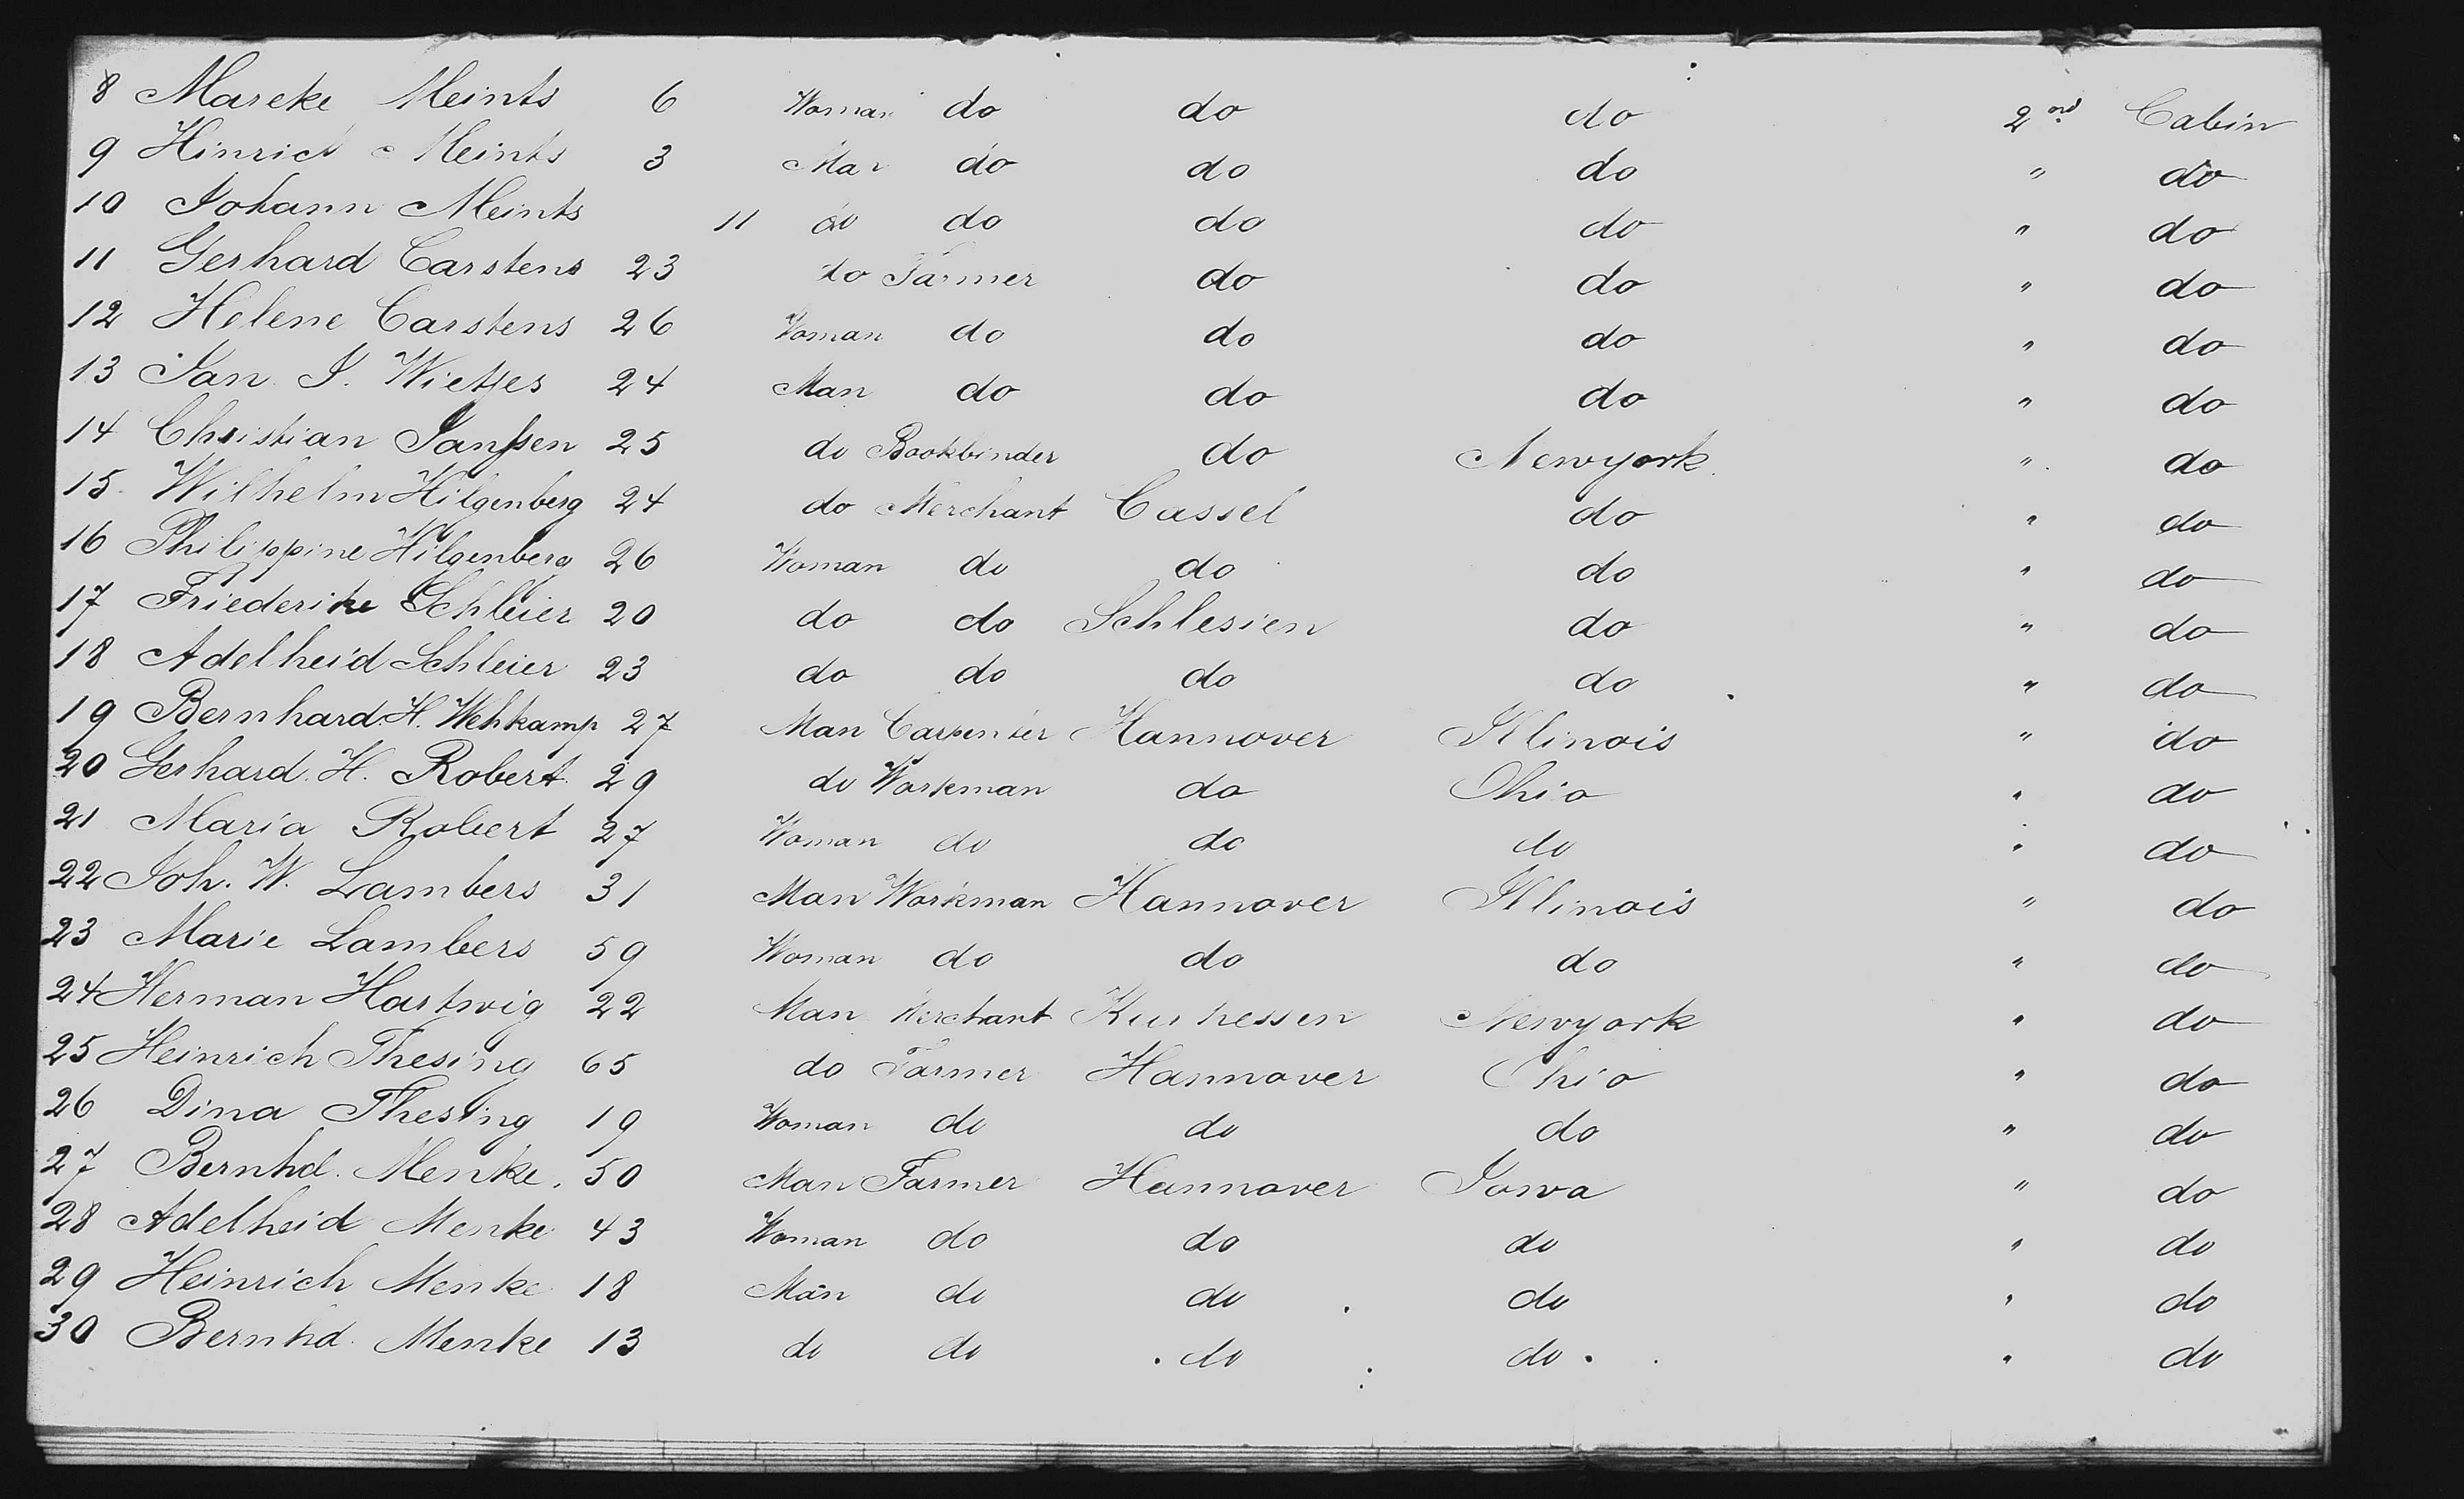 8 Mareke Meints 6 Woman do do do 2nd Cabin
9 Hinrich Meints 3 Man do do do " do
10 Johann Meints 11 do do do do " do
11 Gerhard Carstens 23 do Farmer do do " do
12 Helene Carstens 26 Woman do do do " do
13 Jan J. Wietjes 24 Man do do do " do
14 Christian Janssen 25 do Bookbinder do Newyork " do
15 Wilhelm Hilgenberg 24 do Merchant Cassel do " do
16 Philippine Hilgenberg 26 Woman do do do " do
17 Friederike Schleier 20 do do Schlesien do " do
18 Adelheid Schleier 23 do do do do " do
19 Bernhard H. Wehkamp 27 Man Carpenter Hannover Illinois " do
20 Gerhard H. Robert 29 do Workman do Ohio " do
21 Maria Robert 27 Woman do do do " do
22 Joh. W. Lambers 31 Man Workman Hannover Illinois " do
23 Marie Lambers 59 Woman do do do " do
24 Herman Hartwig 22 Man Merchant Kurhessen Newyork " do
25 Heinrich Thesing 65 do Farmer Hannover Ohio " do
26 Dina Thesing 19 Woman do do do " do
27 Bernhd. Menke. 50 Man Farmer Hannover Iowa " do
28 Adelheid Menke 43 Woman do do do " do
29 Heinrich Menke 18 Man do do do " do
30 Bernhd. Menke 13 do do do do " do